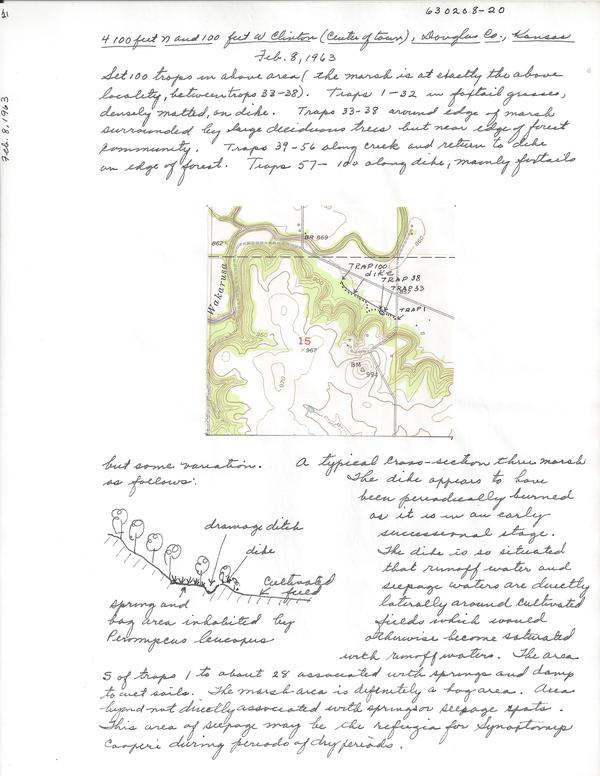 630208-20
4100 feet N and 100 feet W Clinton (Center of town), Douglas Co., Kansas
Feb. 8, 1963
Feb. 8, 1963
Set 100 traps in above area (the marsh is at exactly the above
locality, between traps 33-38). Traps 1-32 in foxtail grasses,
densely matted, on dike. Traps 33-38 around edge of marsh
surrounded by large deciduous trees but near edge of forest
community. Traps 39-56 along creek and return to dike
on edge of forest. Traps 57-100 along dike, mainly foxtails
862
BR 869
860
TRAP 100
dike
TRAP 38
TRAP 33
TRAP 1
Wakarusa
950
15
×967
BM
994
970
but some variation. A typical cross-section thru marsh
as follows:
The dike appears to have
been periodically burned
as it is in an early
successional stage.
The dike is so situated
that runoff water and
seepage waters are directly
laterally around cultivated
fields which would
otherwise become saturated
with runoff waters. The area
drainage ditch
dike
Cultivated
field
spring and
bog area inhabited by
Peromyscus leucopus
S of traps 1 to about 28 associated with springs and damp
to wet soils. The marsh area is definitely a bog area. Area
beyond not directly associated with springs or seepage spots.
This area of seepage may be the refugia for Synaptomys
cooperi during periods of dry periods.